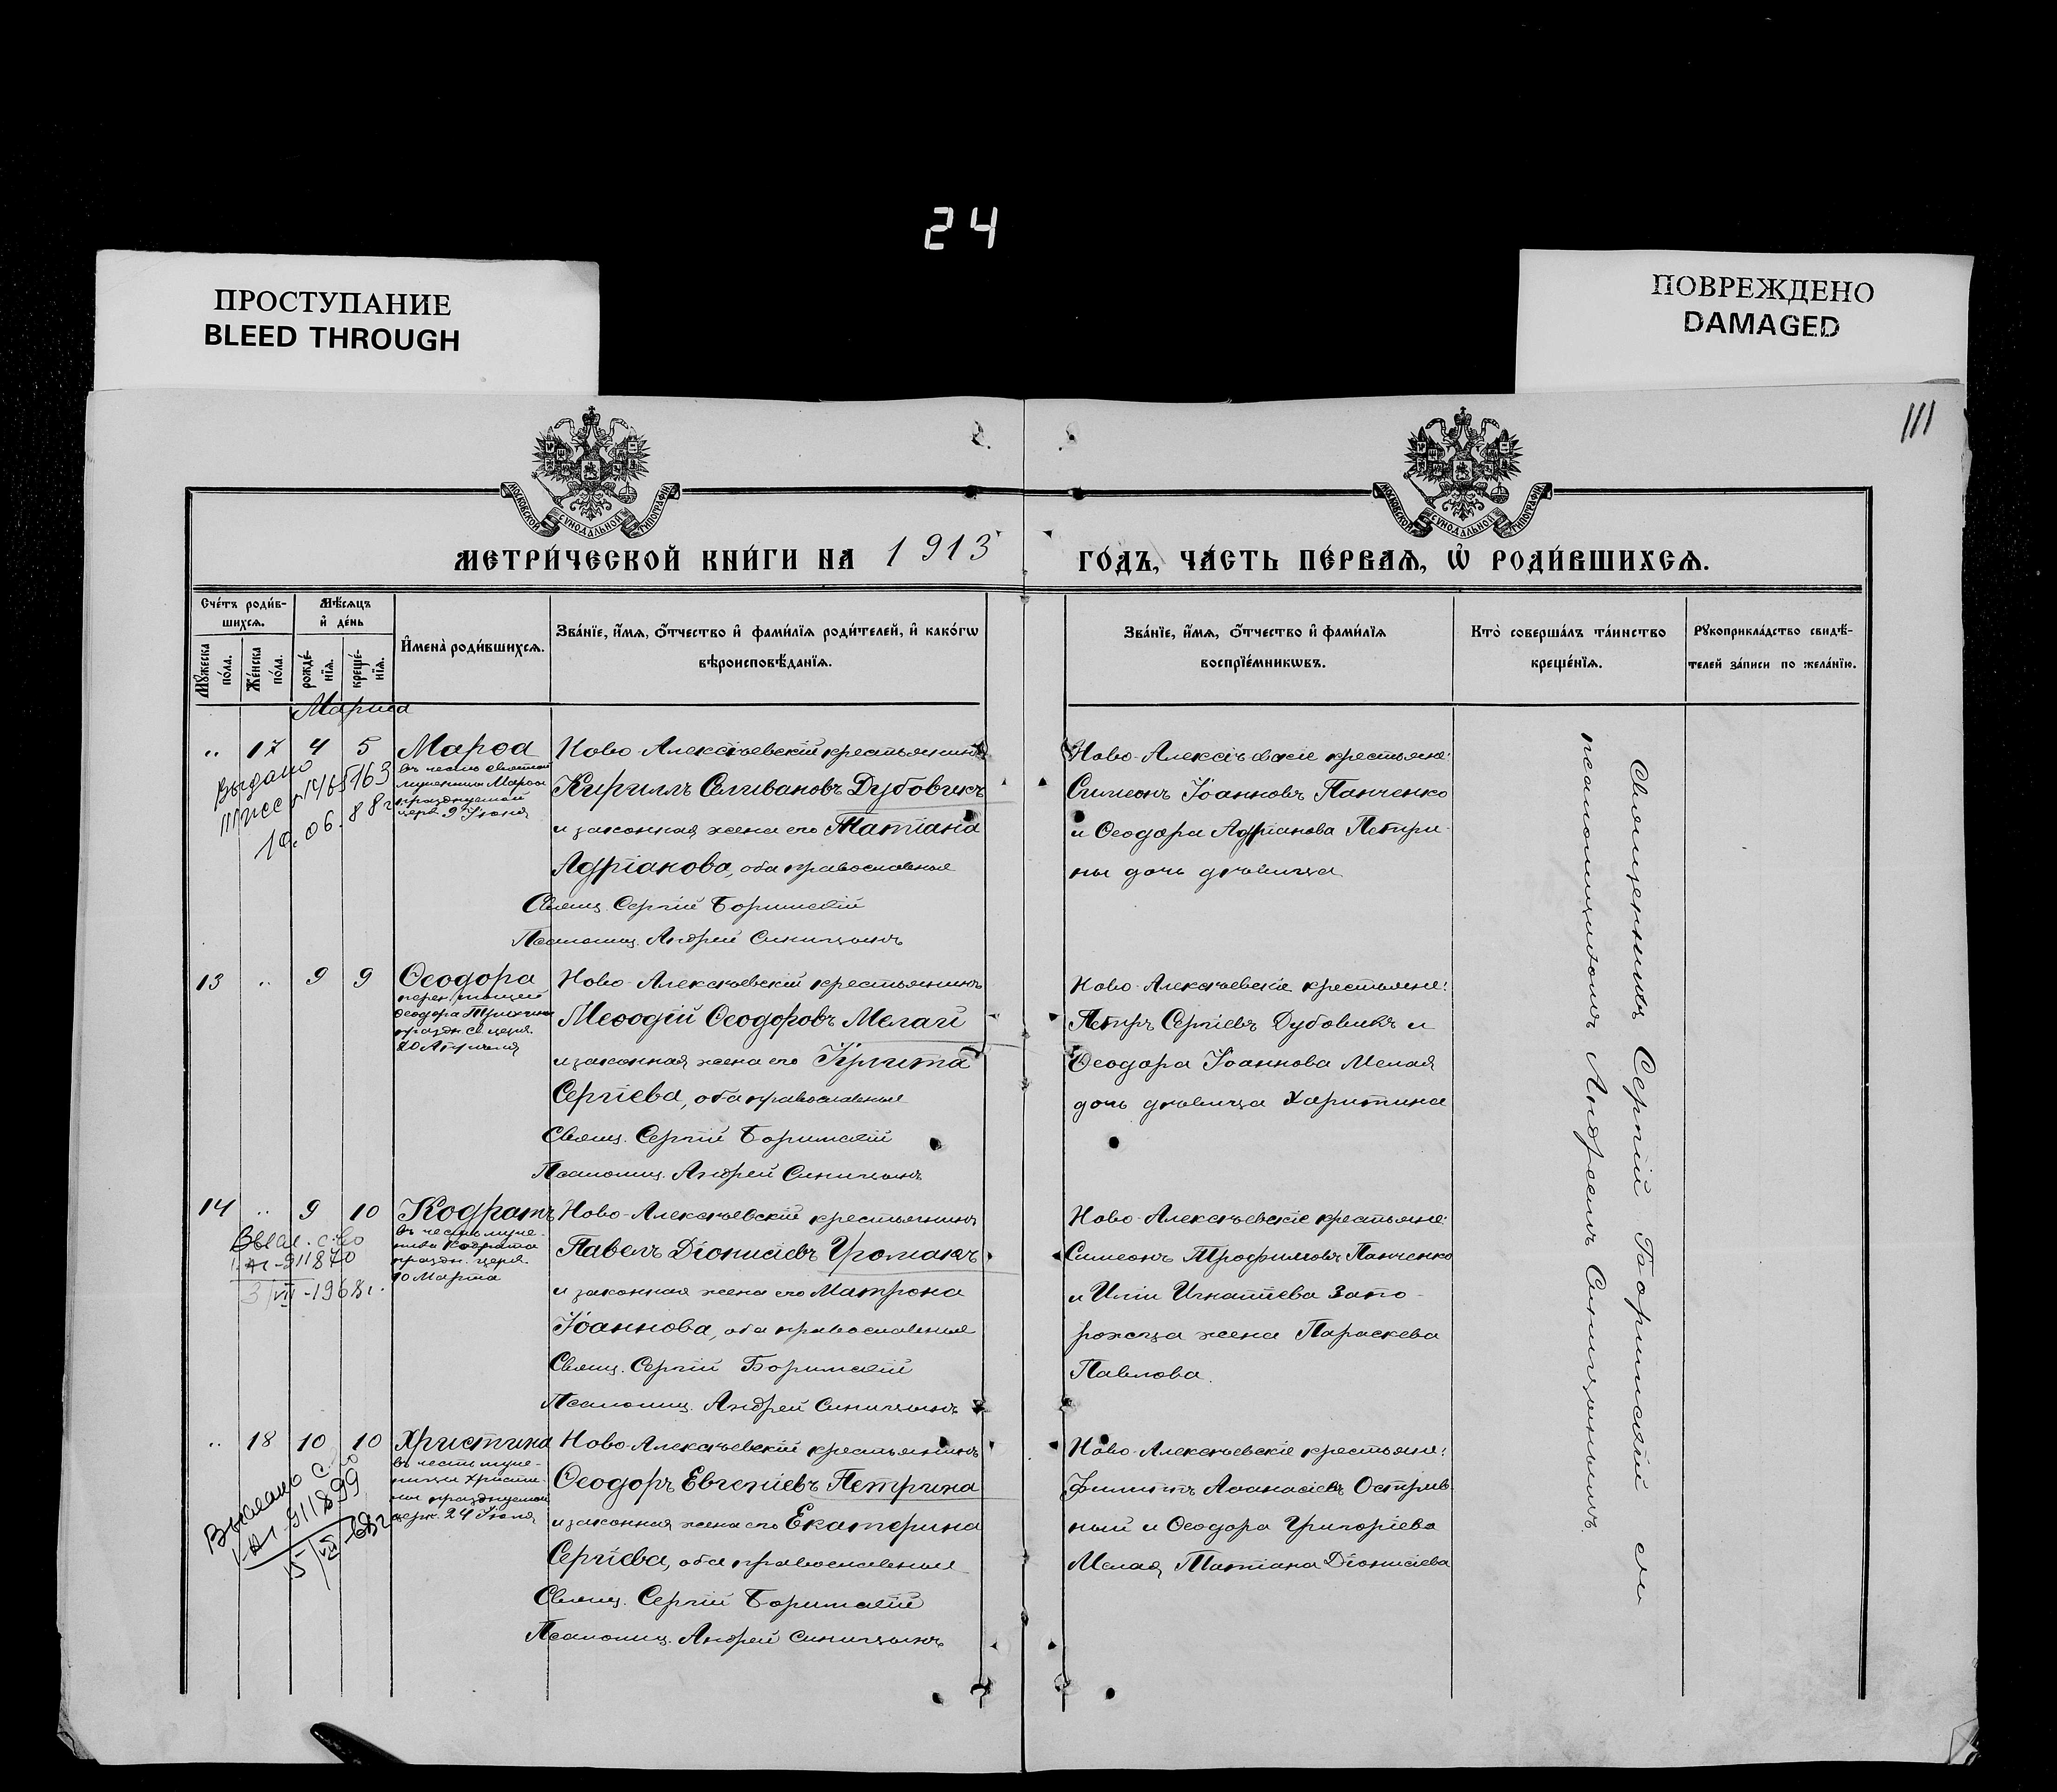 24
ПРОСТУПАНИЕ
BLEED THROUGH
ПОВРЕЖДЕНО
DAMAGED
111
МОСКОВСКОЙ СУНОДАЛЬНОЙ ТИПОГРАФІИ
МОСКОВСКОЙ СУНОДАЛЬНОЙ ТИПОГРАФІИ
МЕТРИ́ЧЕСКОЙ КНИ́ГИ НА 1913
ГО́ДЪ, ЧА́СТЬ ПЕ́РВАѦ, Ѡ҆ РОДИ́ВШИХСѦ.
Сче́тъ роди́в-
шихсѧ.
Мꙋ́жеска по́ла.
Же́нска по́ла.
Мѣ́сѧцъ
и҆ де́нь
рожде́-
нїѧ.
креще́-
нїѧ.
И҆мена̀ роди́вшихсѧ.
Зва́нїе, и҆́мѧ, ѻ҆́тчество и҆ фами́лїѧ роди́телей, и҆ како́гѡ
вѣроисповѣ́данїѧ.
Зва́нїе, и҆́мѧ, ѻ҆́тчество и҆ фами́лїѧ
воспрїе́мникѡвъ.
Кто̀ соверша́лъ та́инство
креще́нїѧ.
Рꙋкоприкла́дство свидѣ́-
телей за́писи по жела́нїю.
Марта
.. 17 4 5 Марѳа
въ честь святой
мученицы Марѳы
празднуемой
церк 9 Іюня
Выдано
10.06.88г
Ново-Алексѣевскій крестьянинъ
Кириллъ Селивановъ Дубовикъ
и законная жена его Татіана
Адріанова, оба православные
Свящ. Сергій Боримскій
Псаломщ. Андрей Синицынъ
Ново-Алексѣевскіе крестьяне:
Симеонъ Іоанновъ Панченко
и Ѳеодора Адріанова Петри-
ны дочь дѣвица
13 .. 9 9 Ѳеодора
Ѳеодора Трихины
праздн. св. церк.
20 Апрѣля
Ново-Алексѣевскій крестьянинъ
Меѳодій Ѳеодоровъ Мелай
и законная жена его
Сергіева, оба православные
Свящ. Сергій Боримскій
Псаломщ. Андрей Синицынъ
Ново-Алексѣевскіе крестьяне:
Петръ Сергіевъ Дубовикъ и
Ѳеодора Іоаннова Мелая
дочь дѣвица Харитина
14 .. 9 10 Кодратъ
въ честь муче-
ника Кодрата
праздн. церк.
10 Марта
Выдан. с-во
911870
3/VII-1968г.
Ново-Алексѣевскій крестьянинъ
Павелъ Діонисіевъ Громакъ
и законная жена его Матрона
Іоаннова, оба православные
Свящ. Сергій Боримскій
Псаломщ. Андрей Синицынъ
Ново-Алексѣевскіе крестьяне:
Симеонъ Трофимовъ Панченко
и Иліи Игнатіева Запо-
рожца жена Параскева
Павлова.
.. 18 10 10 Христина
въ честь муче-
ницы Христи-
ны празднуемой
церк. 24 Іюля
Выдано с-во
911899
15/VII-68г
Ново-Алексѣевскій крестьянинъ
Ѳеодоръ Евгеніевъ Петрина
и законная жена его Екатерина
Сергіева, оба православные
Свящ. Сергій Боримскій
Псаломщ. Андрей Синицынъ
Ново-Алексѣевскіе крестьяне:
Филиппъ Аѳанасіевъ Острив-
ный и Ѳеодора Григоріева
Мелая Татіана Діонисіева
Священникъ Сергій Боримскій съ
псаломщикомъ Андреемъ Синицынымъ.